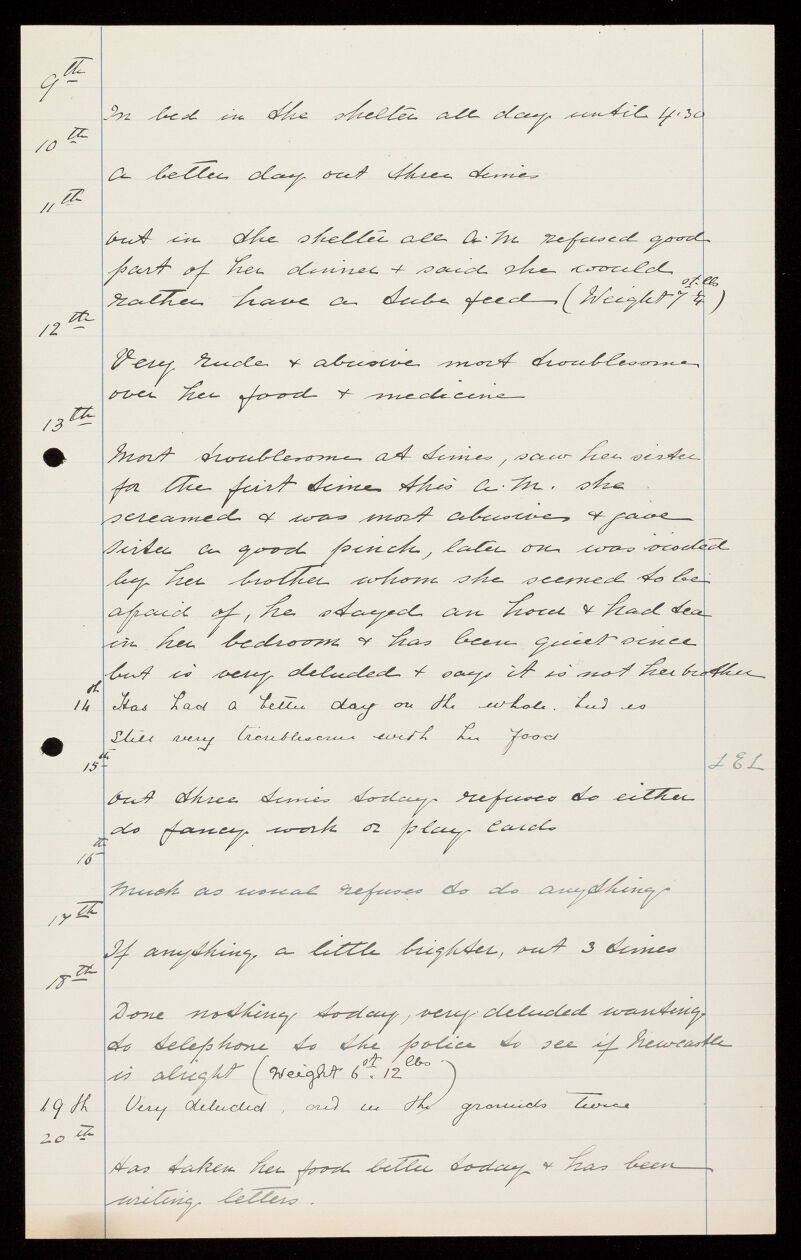 9th
In bed in the shelter all day until 4.30
10th
A better day out three times
11th
Out in the shelter all A.M refused good
part of her dinner + said she would
rather have a tube feed (Weight 7 st. lbs)
12th
Very rude & abusive most troublesome
over her food + medicine
13th
Most troublesome at times, saw her sister
for the first time this A.M. she
screamed & was most abusive & gave
Sister a good pinch, later on was visited
by her brother whom she seemed to be
afraid of, he stayed an hour & had tea
in her bedroom & has been quiet since
but is very deluded + says it is not her brother
14th Has had a better day on the whole. but is
still very troublesome with her food
15th
L E L
Out three times today refuses to either
do fancy work or play cards
16th
Much as usual refuses to do anything
17th
If anything, a little brighter, out 3 times
18th
Done nothing today, very deluded wanting
to telephone to the police to see if Newcastle
is alright (Weight 6 st. 12 lbs)
19th Very deluded, out in the grounds twice
20th
Has taken her food better today & has been
writing letters.